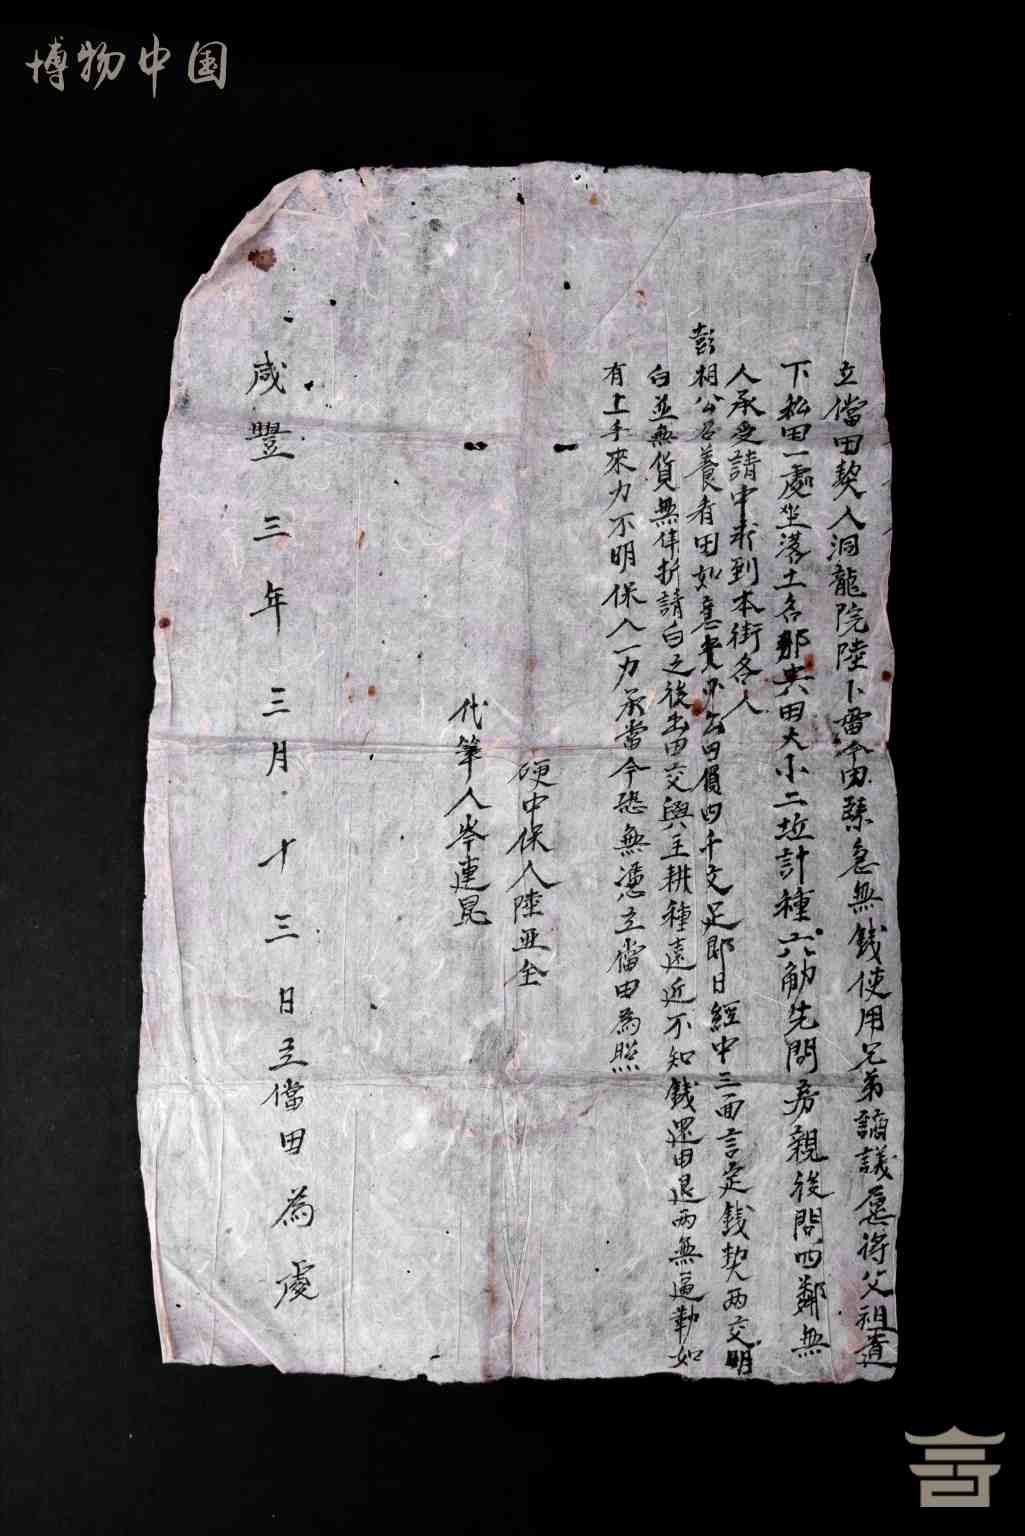 博物中国
立儅田契人洞龍院陸卜雷今因緊急無錢使用兄弟謪議愿将父祖遺
下私田一處坐落土名那共田大小二坵計種六觔先問房親後問四鄰無
人承受請中求到本街各人
彭相公召養看田如意賣出公田價四千文足即日經中三面言定錢契两交明
白並無貨無准折請白之後出田交與主耕種遠近不知錢還田退两無逼勒如
有上手來力不明保人一力承當今恐無憑立儅田為照
硬中保人陸亚全
代筆人岑連昆
咸豐三年三月十三日立儅田為處